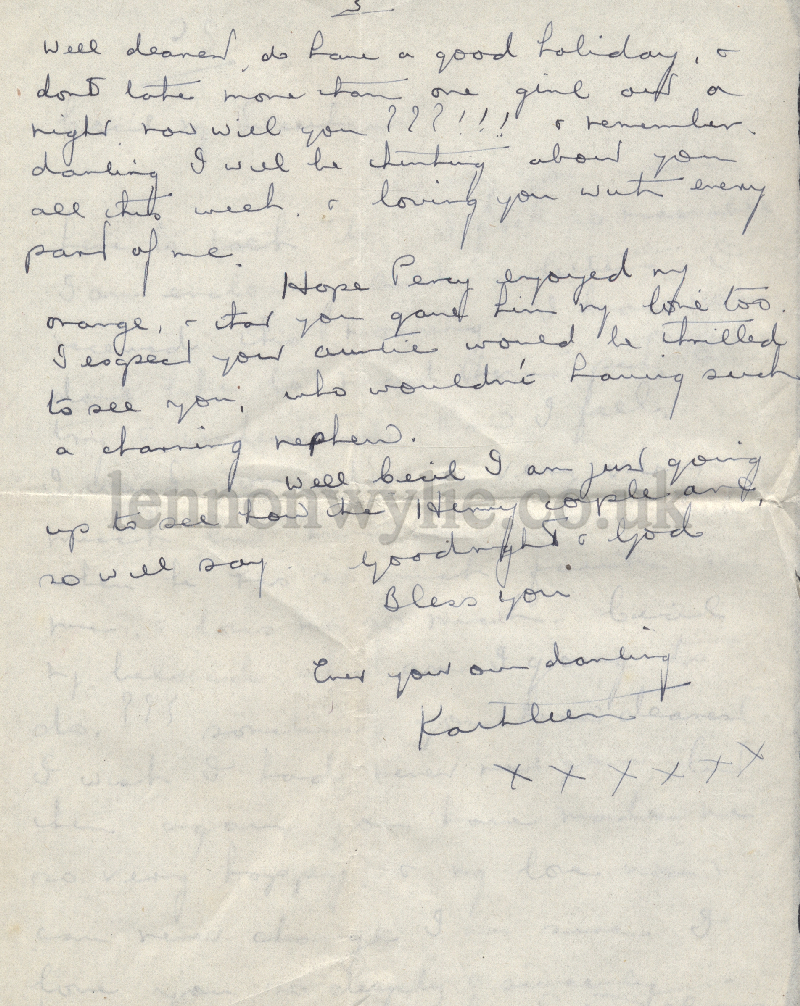 3
Well dearest, do have a good holiday, &
dont take more than one girl out a
night now will you ???!!! & remember
darling I will be thinking about you
all this week. & loving you with every
part of me.
Hope Percy enjoyed my
orange, & that you gave him my love too.
I expect your auntie would be thrilled
to see you, who wouldn't having such
a charming nephew.
Well Cecil I am just going
up to see how the Henry couple are,
so will say Goodnight & God
Bless you
Ever your own darling
Kathleen
x x x x x x
lennonwylie.co.uk